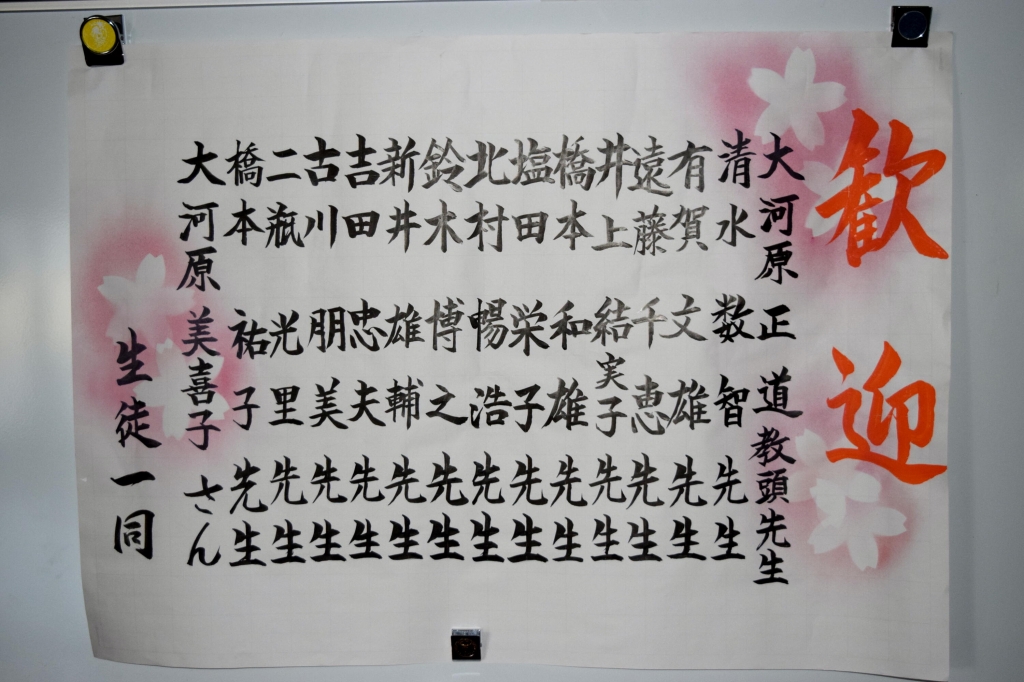 歓迎
大河原正道教頭先生
清水数智先生
有賀文雄先生
遠藤千恵先生
井上結実子先生
橋本和雄先生
塩田栄子先生
北村暢浩先生
鈴木博之先生
新井雄輔先生
吉田忠夫先生
古川朋美先生
二瓶光里先生
橋本祐子先生
大河原美喜子さん
生徒一同